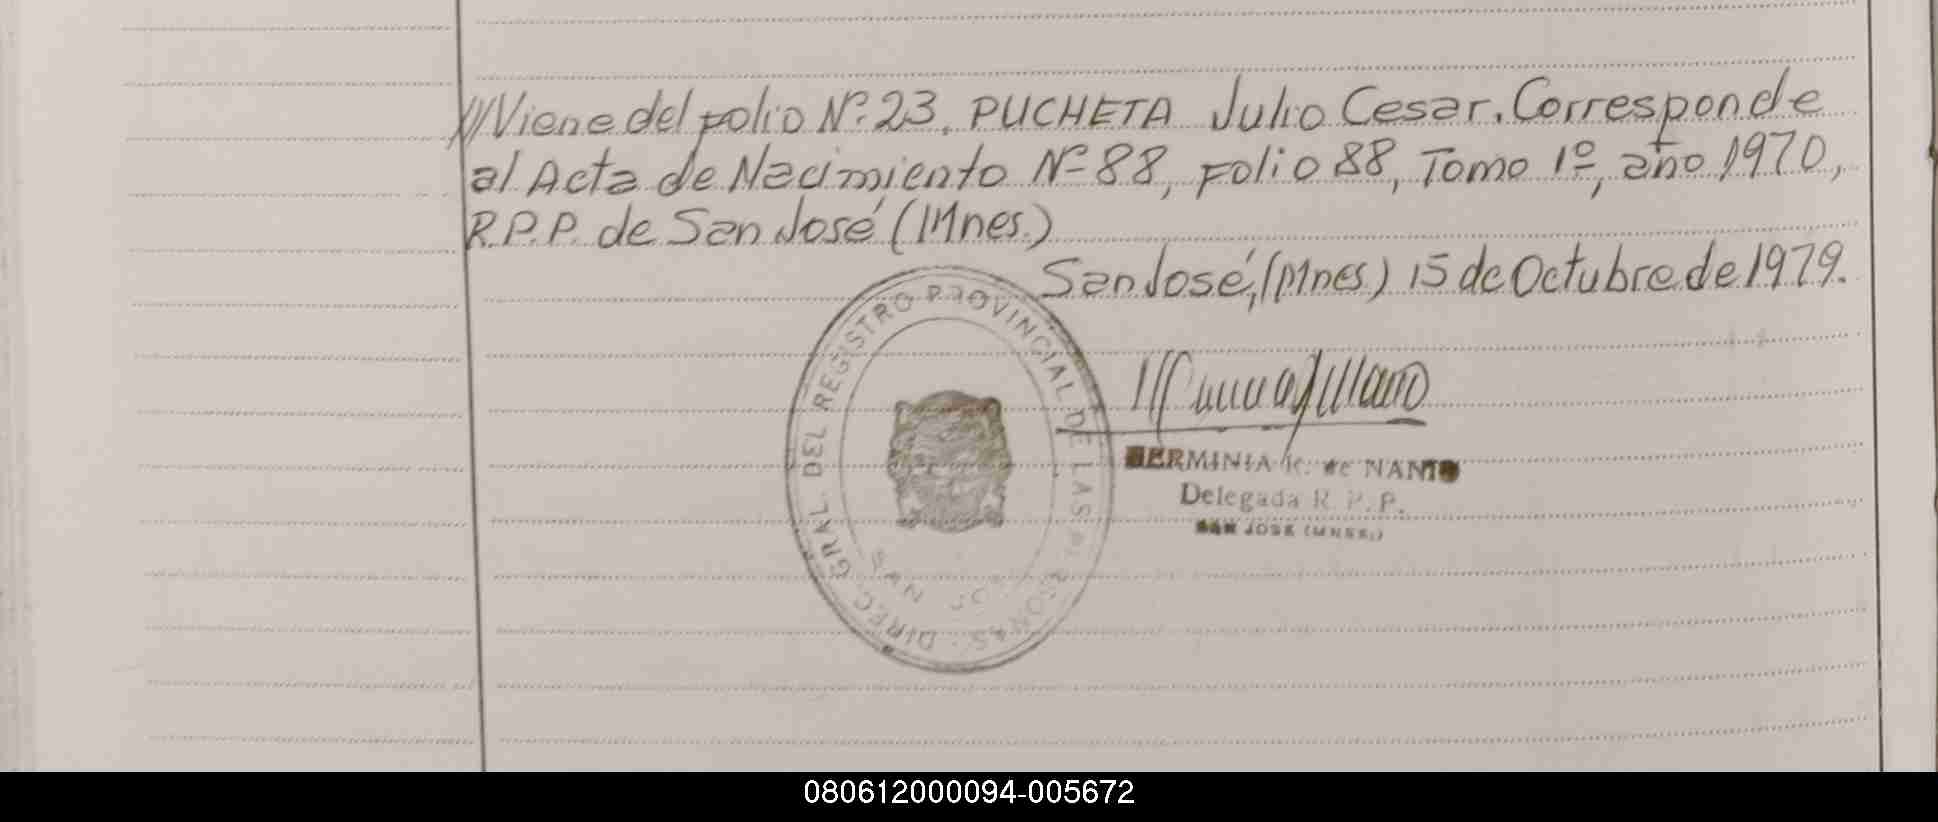 ///Viene del folio Nº 23. PUCHETA Julio Cesar. Corresponde
al Acta de Nacimiento Nº 88, folio 88, Tomo 1º, año 1970,
R.P.P. de San José (Mnes.)
San José, (Mnes) 15 de Octubre de 1979.
DIREC. GRAL. DEL REGISTRO PROVINCIAL DE LAS PERSONAS
HERMINIA de NANTO
Delegada R. P. P.
SAN JOSE (MNES.)
080612000094-005672